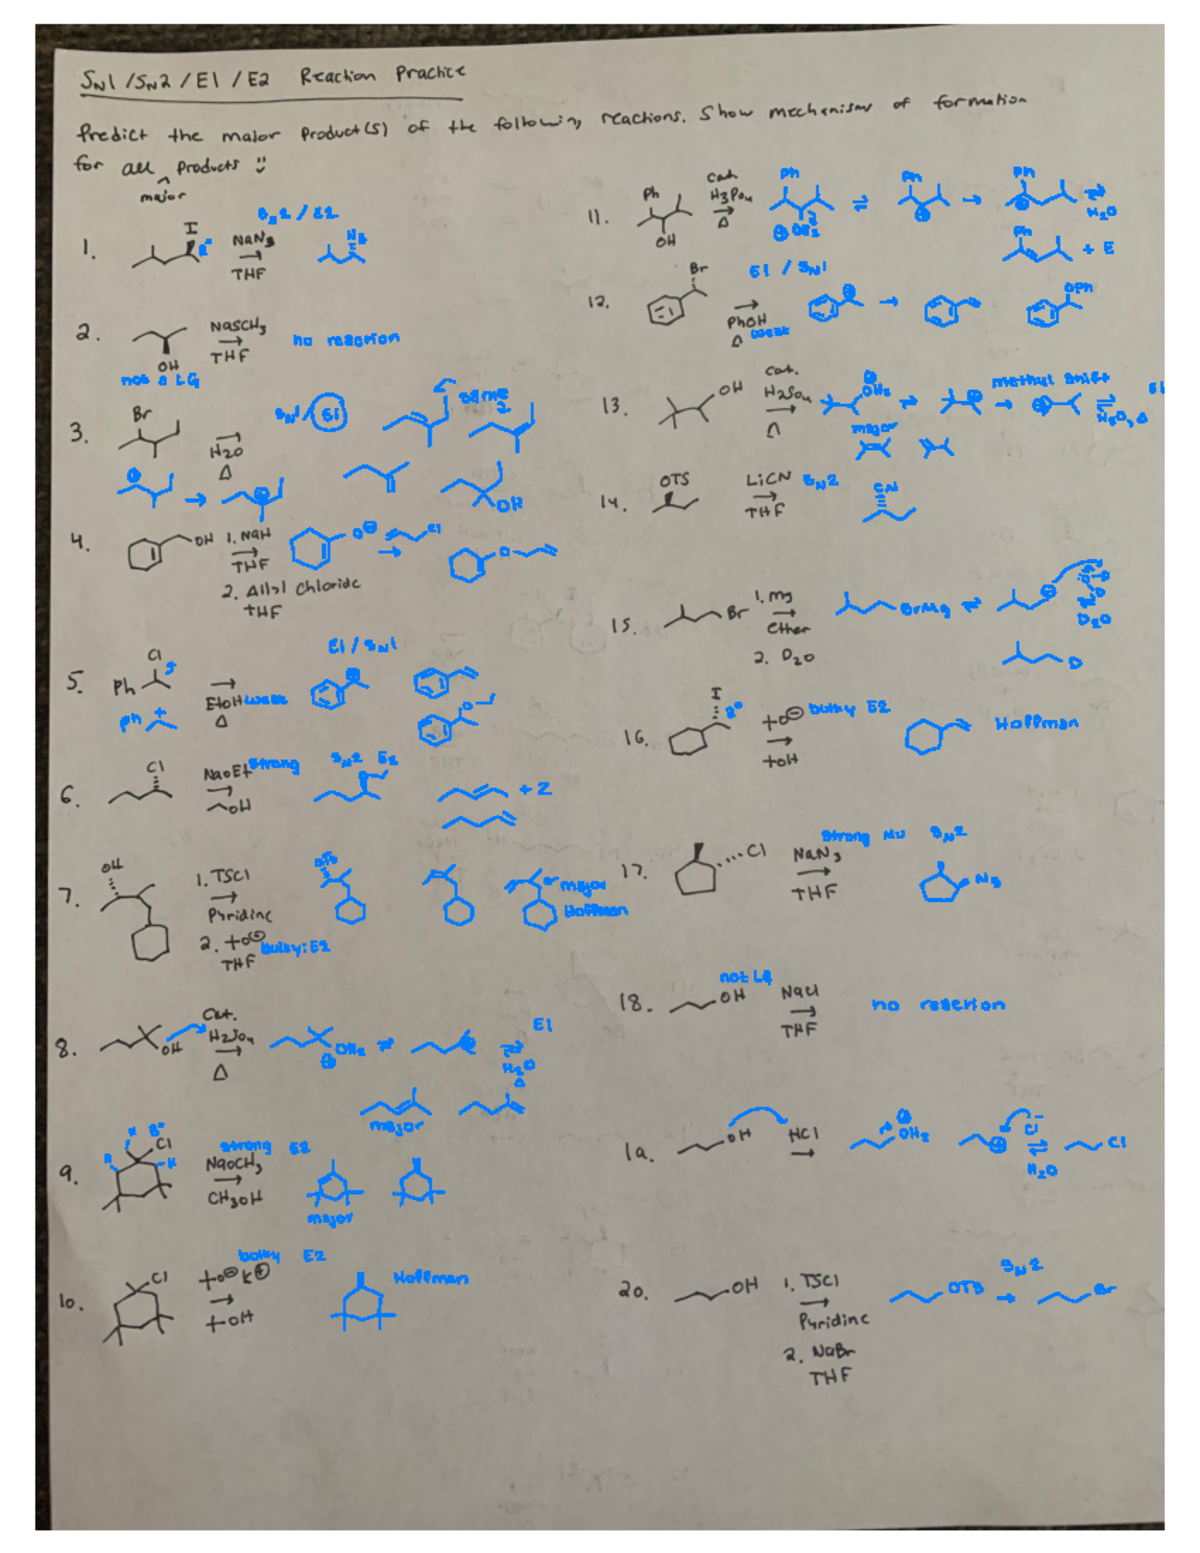 SN1 / SN2 / E1 / E2 Reaction Practice
Predict the major product(s) of the following reactions. Show mechanisms of formation
for all major products :)
1.
I
R"
NaN3
THF
SN2 / E2
N3
2.
OH
not a LG
NaSCH3
THF
no reaction
3.
Br
H2O
Δ
SN1 / E1
same
2
OH
4.
OH
1. NaH
THF
2. Allyl chloride
THF
O⊖
Cl
O
5.
Ph
Cl
Ph +
EtOH weak
Δ
E1 / SN1
O
6.
Cl
NaOEt strong
OH
SN2 E2
O
+ Z
7.
OH
1. TSCl
Pyridine
2. +O⊖ bulky: E2
THF
OTs
or major
Hoffman
8.
OH
Cat.
H2SO4
Δ
OH2
⊕
H2O
Δ
E1
major
9.
H
B"
Cl
H
H
strong E2
NaOCH3
CH3OH
major
10.
Cl
bulky E2
+O⊖ K⊕
+OH
Hoffman
11.
Ph
OH
Cat.
H3PO4
Δ
Ph
⊕ OH2
Ph
⊕
Ph
⊕
H2O
Ph
+ E
12.
Br
PhOH
Δ weak
E1 / SN1
⊕
OPh
13.
OH
Cat.
H2SO4
Δ
⊕
OH2
⊕
methyl shift
⊕
E1
H2O, Δ
major
14.
OTS
LiCN SN2
THF
CN
15.
Br
1. Mg
Ether
2. D2O
BrMg
D2O
D
16.
I
+O⊖ bulky E2
+OH
Hoffman
17.
Cl
Strong Nu SN2
NaN3
THF
N3
18.
not LG
OH
NaCl
THF
no reaction
19.
OH
HCl
⊕
OH2
⊕
Cl
H2O
Cl
20.
OH
1. TSCl
Pyridine
2. NaBr
THF
OTS
SN2
Br